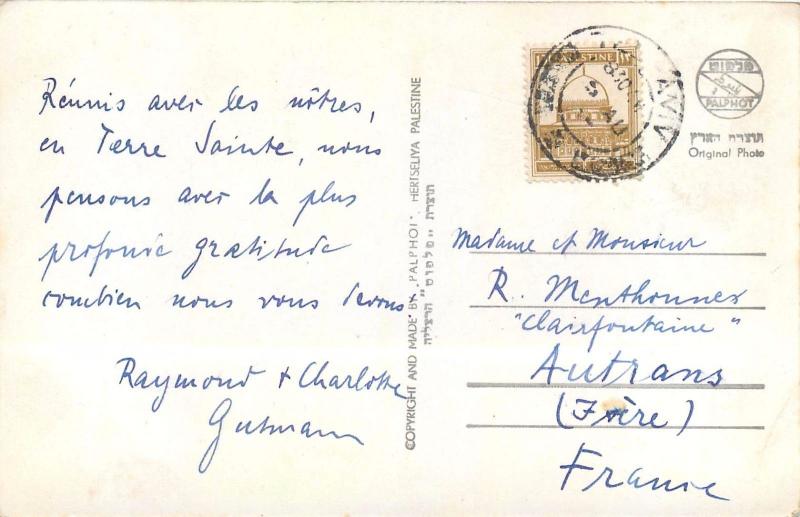 Réunis avec les nôtres,
en Terre Sainte, nous
pensons avec la plus
profonde gratitude
combien nous vous devons.
Raymond + Charlotte
Gutmann
COPYRIGHT AND MADE BY "PALPHOT", HERTSELIYA PALESTINE
תוצרת "פלפוט" הרצליה
PALESTINE
AVIV
פלפוט
PALPHOT
תוצרת הארץ
Original Photo
Madame et Monsieur
R. Menthonnex
"Clairfontaine"
Autrans
(Isère)
France